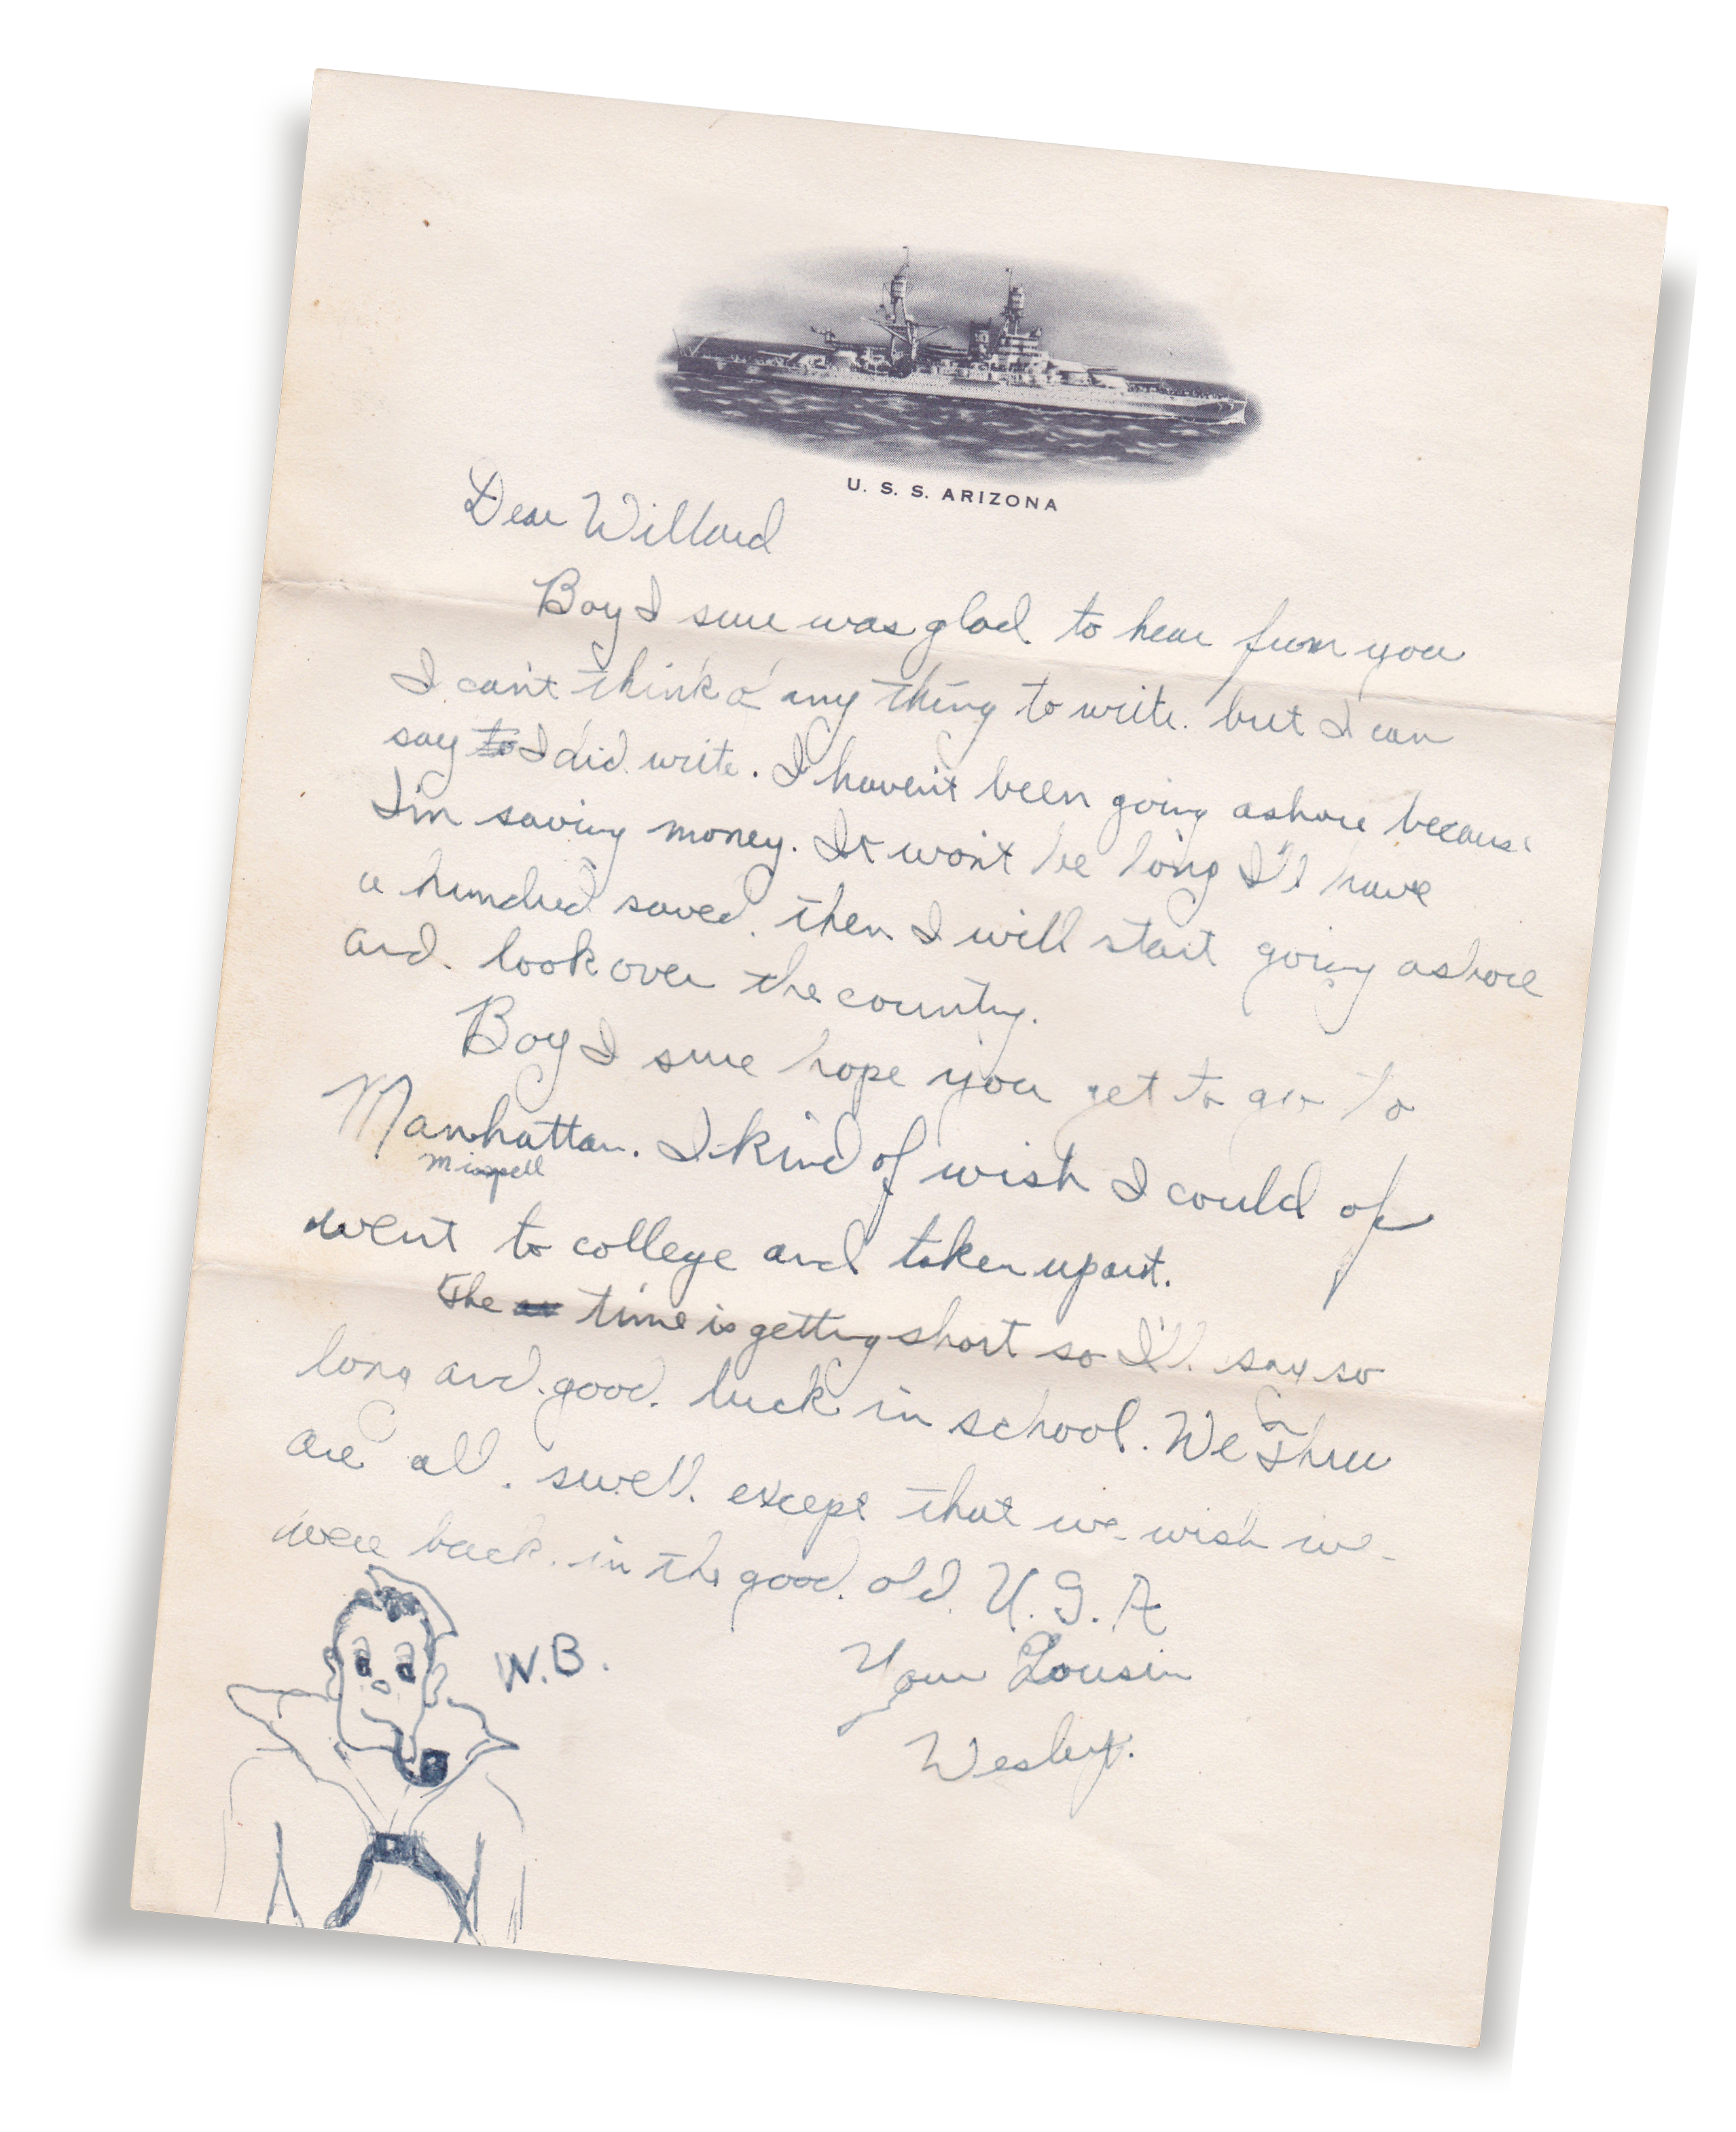 U. S. S. ARIZONA
Dear Willard
Boy I sure was glad to hear from you
I can't think o' any thing to write. but I can
say to I did write. I haven't been going ashore because
I'm saving money. It won't be long I'll have
a hundred saved. then I will start going ashore
and look over the country.
Boy I sure hope you get to go to
Manhattan. I kind of wish I could of
misspell
went to college and taken up art.
The time is getting short so I'll say so
long and good luck in school. We three
are all swell except that we wish we
were back in the good old U.S.A
W.B.
Your Cousin
Wesley.